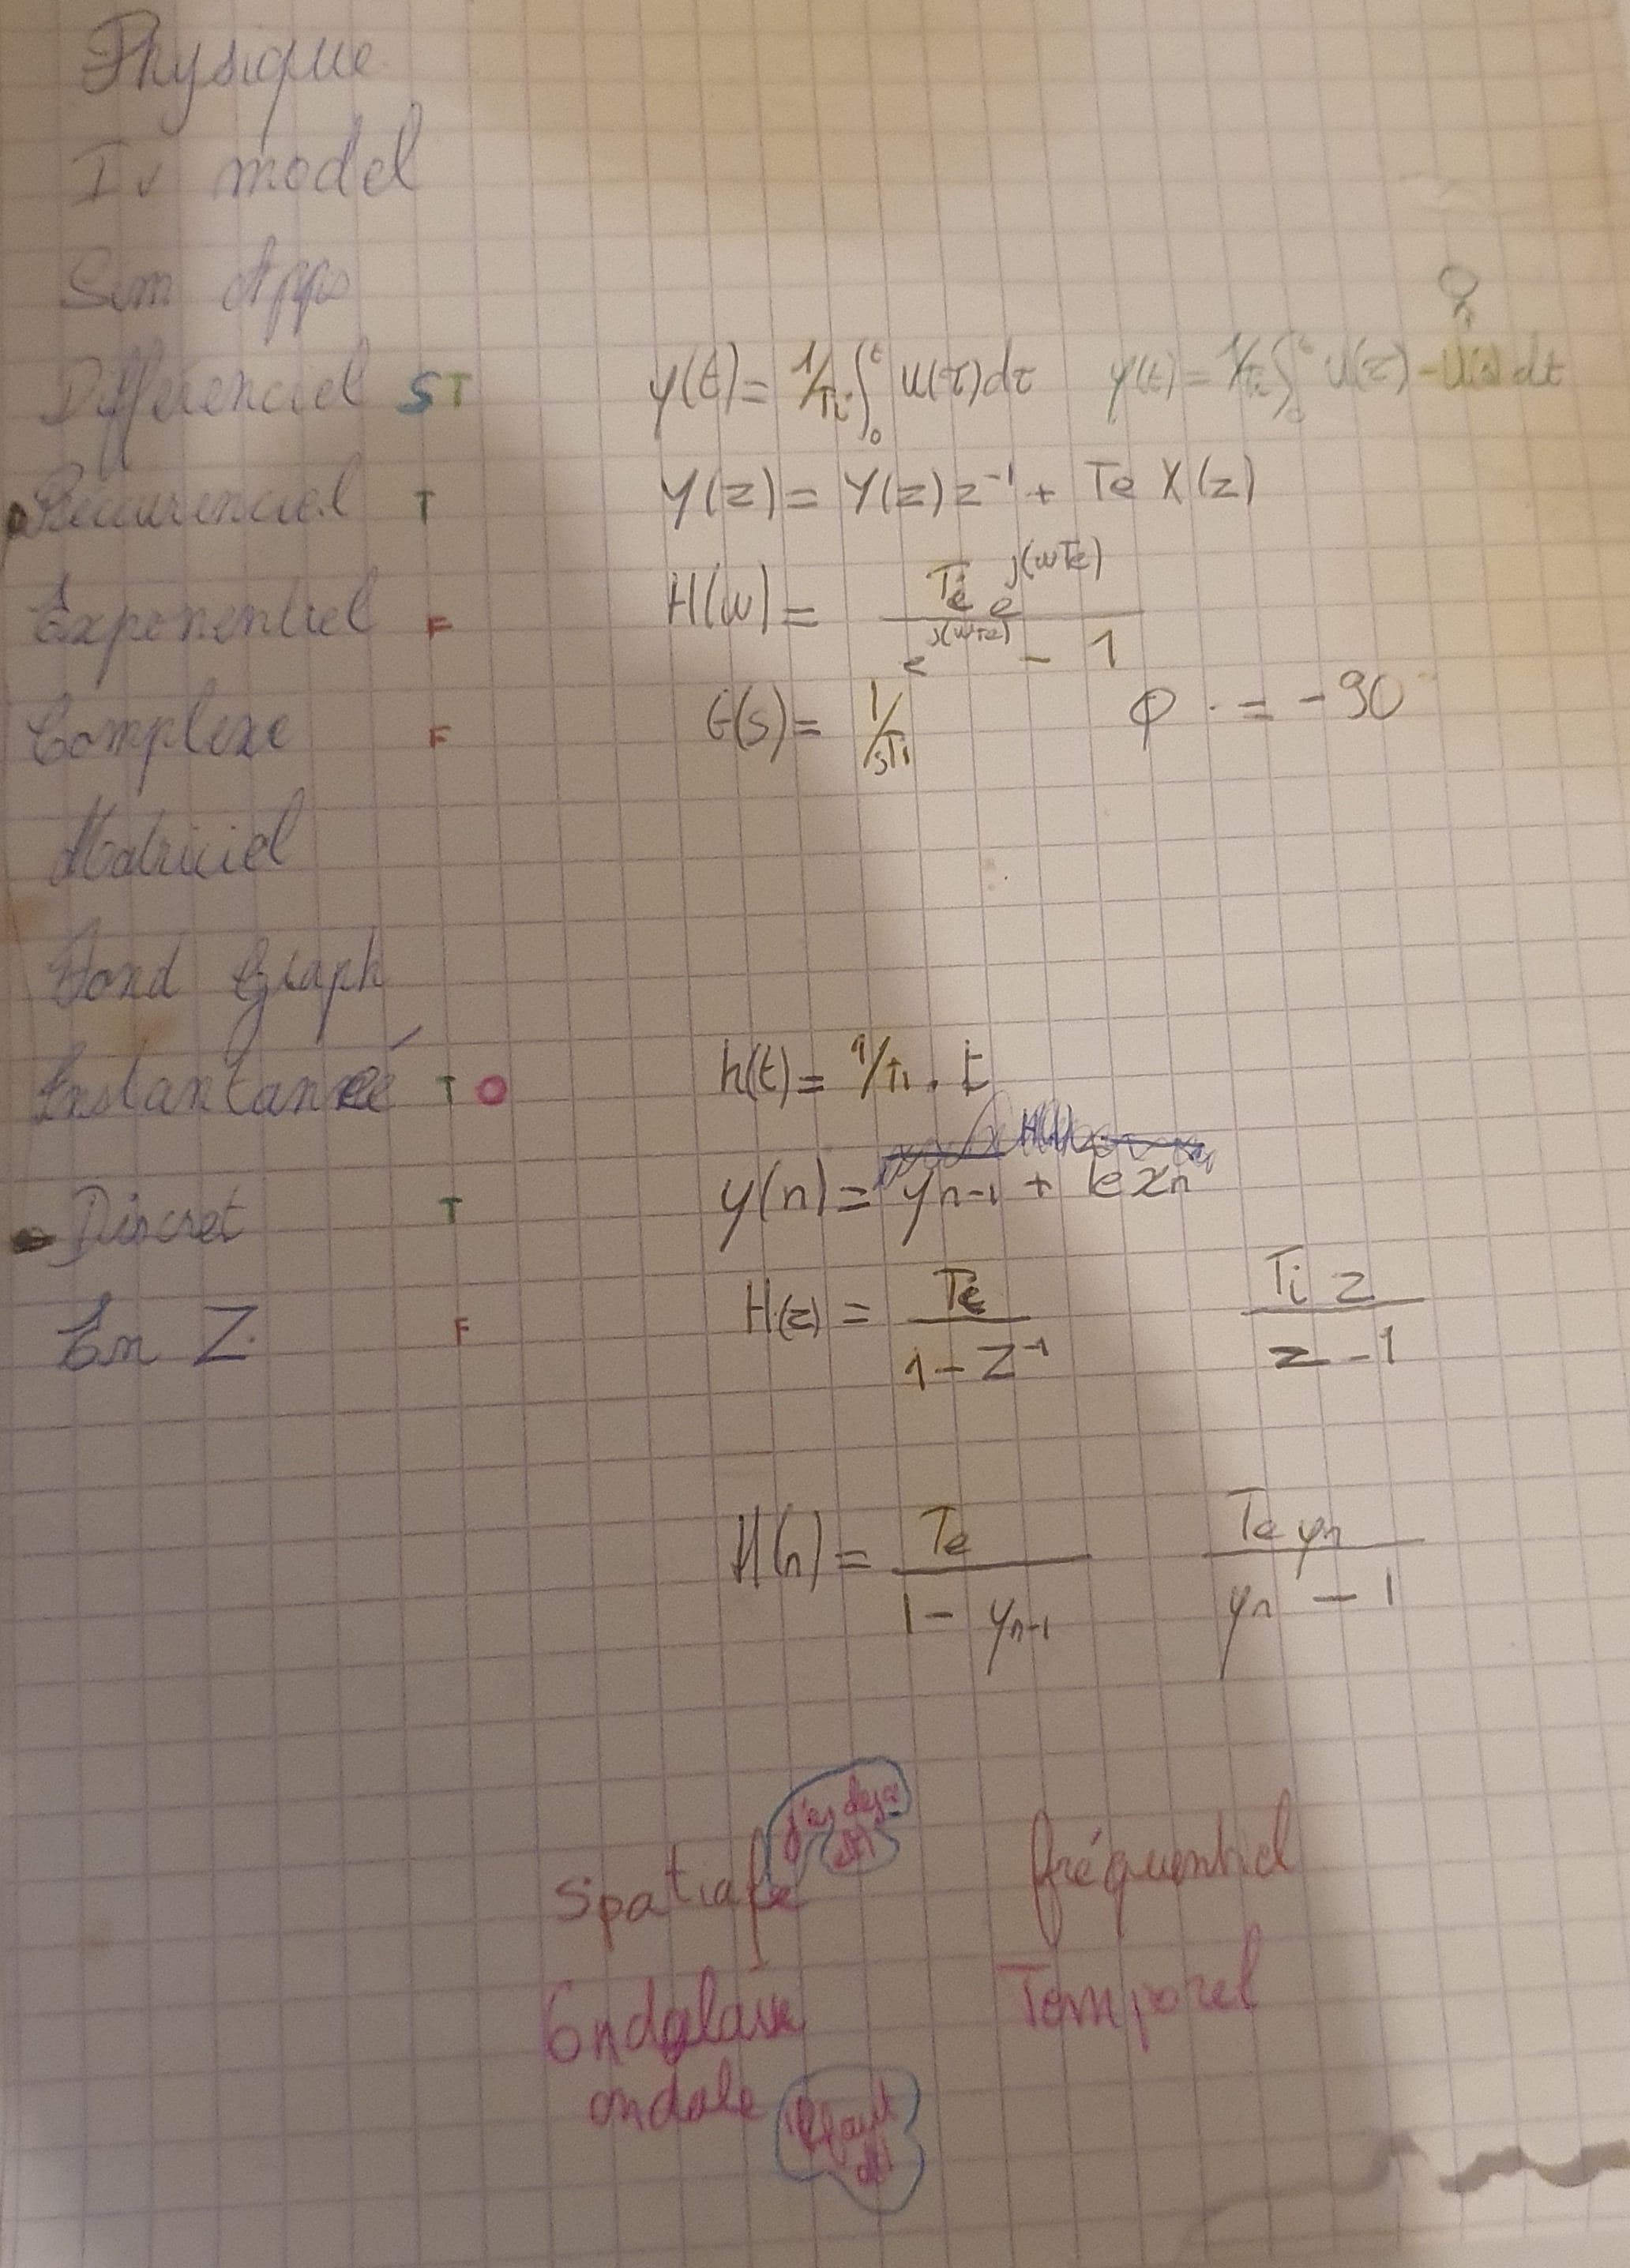 Physique
Iv model
Sim Apps
Differenciel ST y(t) = 1/Ti ∫₀ᵗ u(τ)dτ y(t) = 1/Ti ∫₀ᵗ u(τ) - U(s) dt
Récurenciel T Y(z) = Y(z) z⁻¹ + Te X(z)
Exponentiel F H(w) = Te e^j(wTe) / e^j(wTe) - 1
Complexe F G(s) = 1/sTi φ = -90°
Matriciel
Bond Graph
Instantané T O h(t) = 1/Ti . t
Discret T y(n) = yn-1 + te xn
En Z F H(z) = Te / 1 - Z⁻¹ Ti z / z - 1
H(n) = Te / 1 - yn-1 Te yn / yn - 1
Spatiale fréquentiel
Temporel
ondale